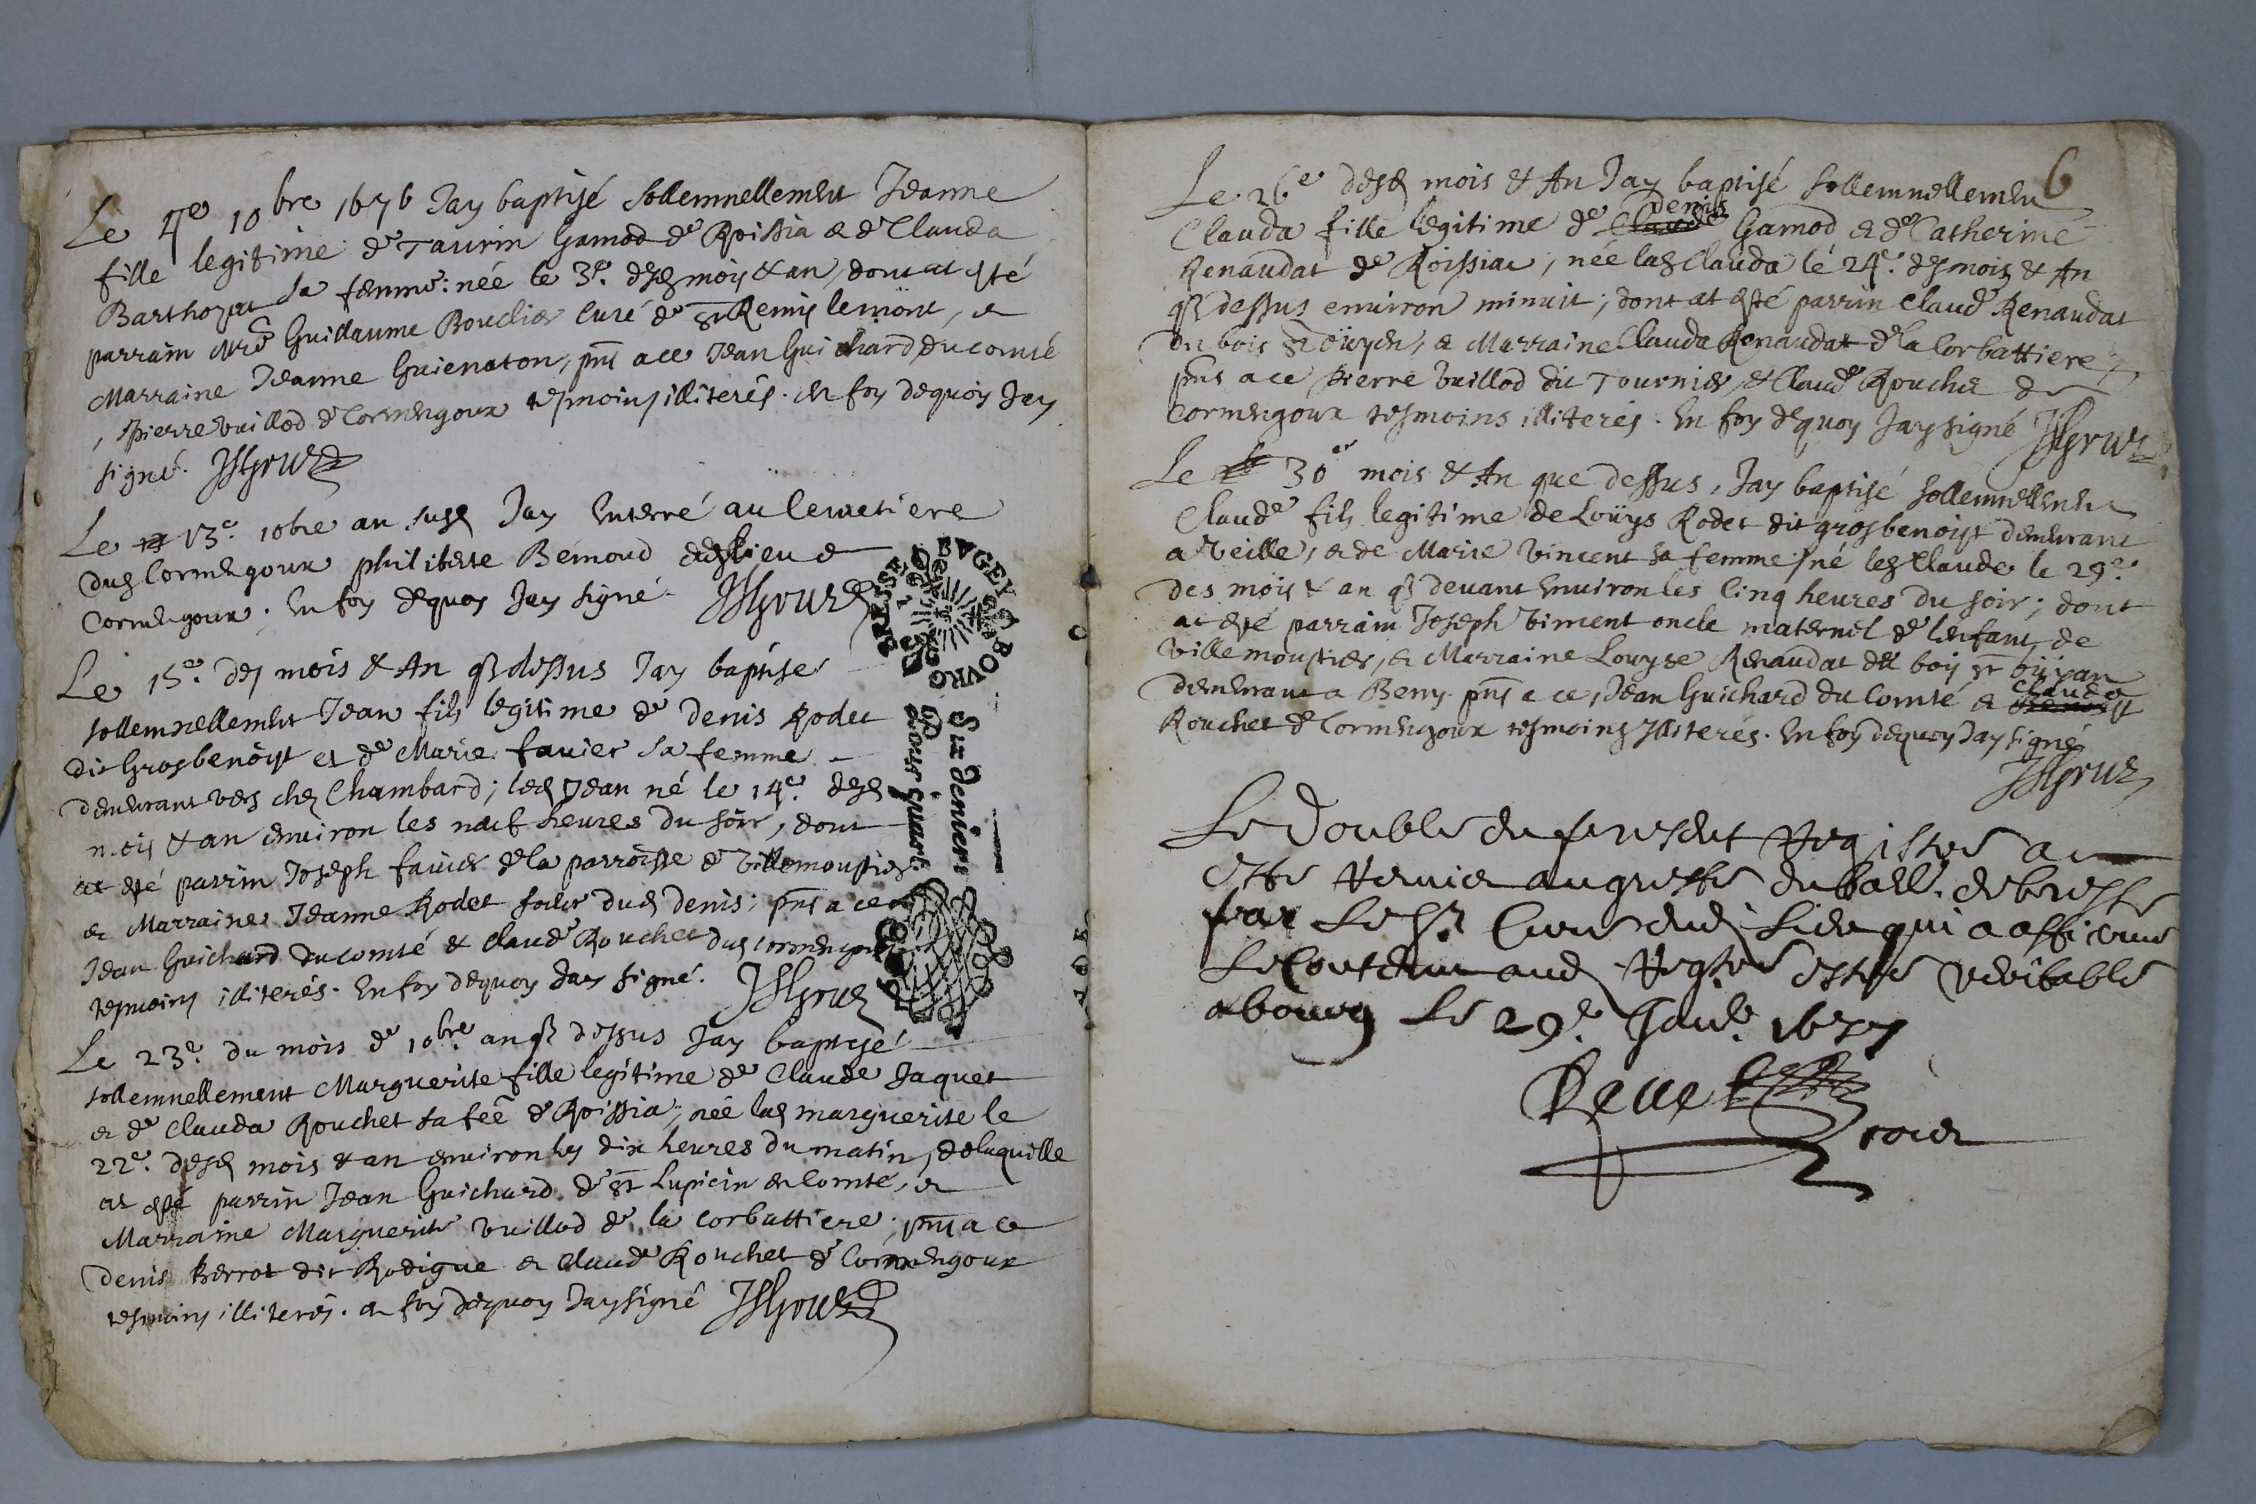 Le 4e 10bre 1676 Jay baptisé sollemnellement Jeanne
fille legitime de Taurin Gamod de Roissia & de Clauda
Barthozat sa femme: née le 3e desd mois & an, dont at esté
parrain Mre Guillaume Bouclier Curé de St Remis lemont, et
Marraine Jeanne Guienaton, pnts a ce Jean Guichard du comté
, Pierre Vuillod de Cormengoux tesmoins illiterés. en foy dequoy Jay
signé. JSGruz
Le 13e 10bre an susd Jay Enterré au Cemetiere
dud Cormengoux philiberte Bernoud dud lieu de
Cormengoux. En foy dequoy Jay signé. JSGruz
Le 15e des mois & An q dessus Jay baptisé
sollemnellement Jean fils legitime de Denis Rodet
dit Grosbenoist et de Marie favier sa femme
demeurant vers chez Chambard; led Jean né le 14e desd
mois & an environ les neuf heures du soir, dont
at esté parrin Joseph favier de la parroisse de Villemoustier
et Marraine Jeanne Rodet soeur dud denis; pnts a ce
Jean Guichard du comté & Claude Rouchet dud cormengoux
tesmoins illiterés. En foy dequoy Jay signé. JSGruz
Le 23e du mois de 10bre an q dessus Jay baptisé
sollemnellement Marguerite fille legitime de Claude Jaquet
et de Clauda Rouchet sa fee de Roissia; née lad marguerite le
22e desd mois & an environ les dix heures du matin, de laquelle
at esté parrin Jean Guichard de St Lupicin en Comté, et
Marraine Marguerite Vuillod de la Corbattiere; pnts a ce
denis Perrot dit Rodigue et Claude Rouchet de Cormengoux
tesmoins illiterés. en foy dequoy Jay signé JSGruz
BRESSE BUGEY ET BOURG
Six deniers
pour quart
6
Le 26e desd mois & An Jay baptisé sollemnellement
Clauda fille legitime de Denis Gamod et de Catherine
Renaudat de Roissiac, née lad Clauda lé 24e des mois & An
q dessus environ minuit; dont at esté parrin Claude Renaudat
du bois St Oüyen, et Marraine Clauda Renaudat de la Corbattiere,
pnts a ce Pierre Vuillod dit Tournier, & Claude Rouchet de
Cormengoux tesmoins illiterés. En foy dequoy Jay signé JSGruz
Le 30e mois & An que dessus, Jay baptisé sollemnellement
Claude fils legitime de Loüys Rodet dit grosbenoist demeurant
a Veille, et de Marie Vincent sa femme, né led Claude le 29e
des mois & an q devant Environ les Cinq heures du soir; dont
at esté parrain Joseph Vincent oncle maternel de lenfant, de
Villemoustier, et Marraine Louyse Renaudat du bois St Oüyan
demeurant a Beny. pnts a ce, Jean Guichard du Comté et Claude
Rouchet de Cormengoux tesmoins Illiterés. En foy dequoy Jay signé
JSGruz
Le Double du present Registre a
esté Remis au greffe du baill. de bresse
par Le Sr Curé dud Lieu qui a affirmé
Le Contenu aud Registre estre veritable
a bourg Le 29e Janv. 1677